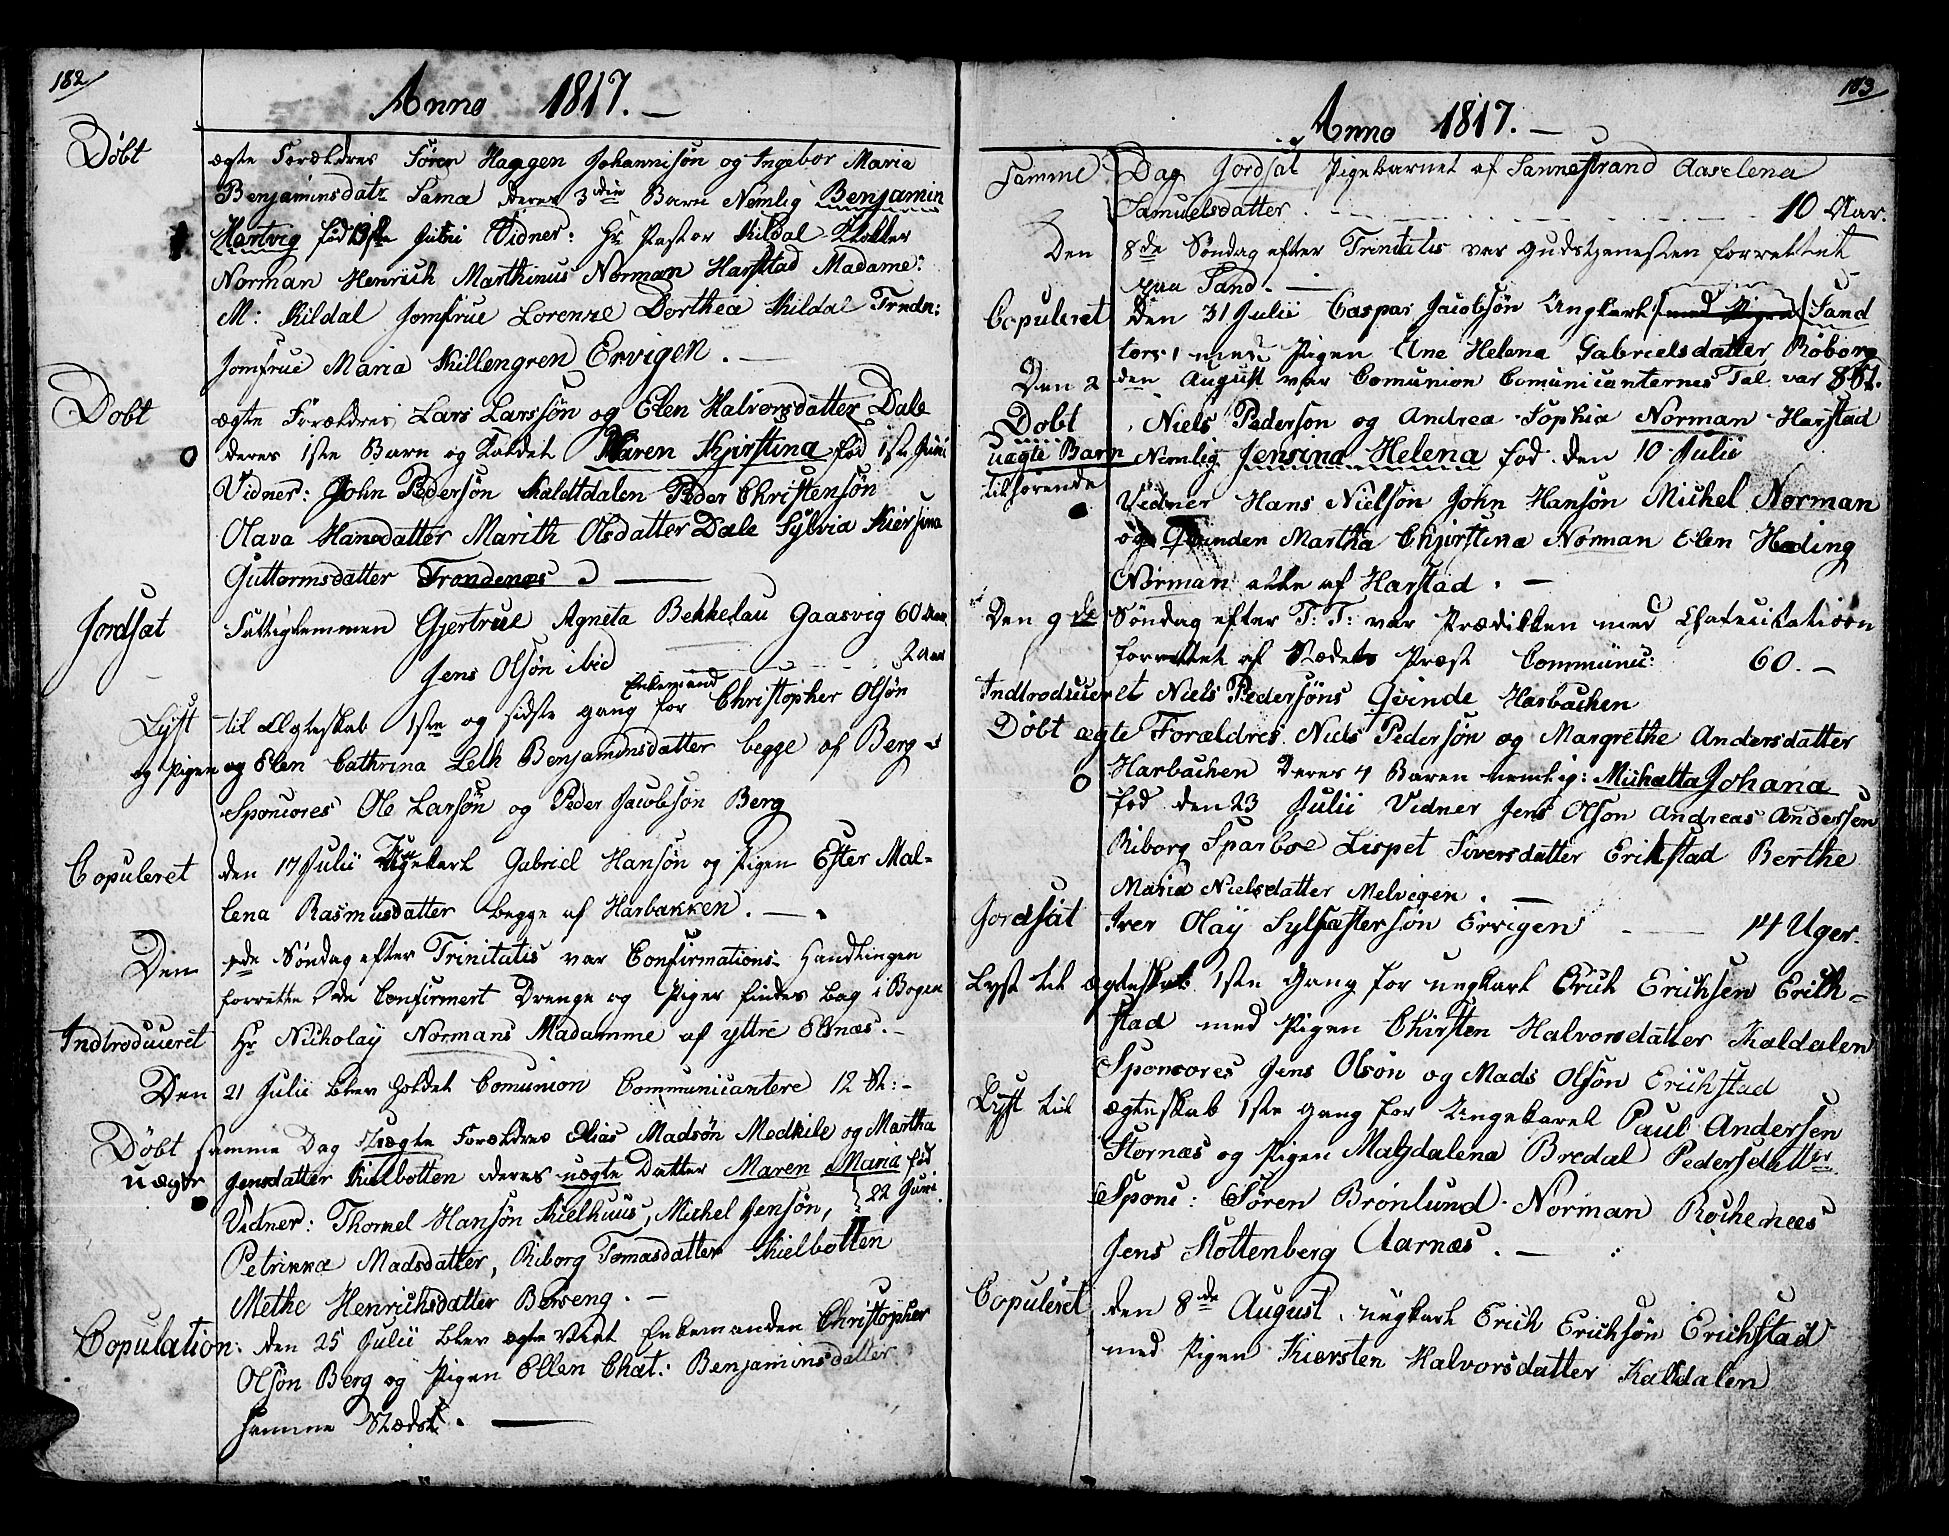 182
Anno 1817. —
Døbt ægte Forældres Søren Haagen Johannisøn og Ingebor Maria
Benjaminsdatr Sama deres 3die Barn Nemlig Benjamin
Hartvig fød Juni Vidner: Hr Pastor Kildal Klokker
Norman Henrich Marthinus Norman Harstad Madame:
M: Kildal Jomfrue Lorenze Dorthea Kildal Trndn:
Jomfrue Maria Killengren Ervigen. —
Døbt ægte Forældres Lars Larssøn og Elen Halvorsdatter Dale
deres 1ste Barn og Kaldet Karen Kjirstina fød 1ste Juni
Vidner: John Pedersøn Kaldtdalen Peder Christensøn
Olava Hansdatter Marith Olsdatter Dale Sylvia Kiersina
Guttormsdatter Trondenæs —
Jordsat Fattiglemmen Gjertrue Agneta Bekkelau Gaasvig 60 Aar
Jens Olsøn ibid — 2 Aar
Enkemand
Lyst til Ægteskab 1ste og sidste gang for Christopher Olsøn
og Pigen og Elen Cathrina Leth Benjaminsdatter begge af Berg
Sponcores Ole Larsøn og Peder Jacobsøn Berg
Copuleret den 17 Julii Ungekarl Gabriel Hansøn og Pigen Ester Mal=
lena Rasmusdatter begge af Harbakken. —
Den 7de Søndag efter Trinitatis var Confirmations Handlingen
forrette, de Confirmert Drenge og Piger findes bag i Bogen
Indtroduceret Hr Nicholay Normans Madamme af yttre Elsnæs. —
Den 21 Julii blev holdet Comunion Communicantere 12 St: —
Døbt samme Dag Uægte Forældres Elias Madsøn Medkile og Martha
uægte Jensdatter Kielbotten deres uægte Datter Maren Maria fød
22 Juni.
Vidner: Thomel Hansøn Kielhuus, Michel Jensøn,
Petrikka Madsdatter, Riborg Tomasdatter Kielbotten
Methe Henrichsdatter Berseng. —
Copulation: den 25 Julii blev ægte Viet Enkemanden Christopher
Olsøn Berg og Pigen Ellen Chat: Benjaminsdatter
samme Stædst. —
183
Anno 1817. —
Samme Dag Jordsat Pigebarnet af Sannestrand Aaselena
Samuelsdatter — 10 Aar.
Den 8de Søndag efter Trinitatis var Gudstjenesten forrettet
paa Sand. —
Copuleret den 31 Julii Caspar Jacobsøn Ungkarl med Pigen Sand
tors, med Pigen Ane Helena Gabrielsdatter Røborg
Den 2 den August var Comunion Comunicanternes Tal var 861.
Døbt Niels Pedersøn og Andrea Sophia Norman Harstad
uægte Barn Nemlig Jensina Helena fød den 10 Julii
tilhørende Vidner Hans Nielsøn John Hansøn Michel Norman
og Qvinden Martha Chjirstina Norman Elen Heding
Norman alle af Harstad. —
Den 9de Søndag efter T: T: var Prædikken med Chatecitatioon
forrettet af Stædets Præst Commünu: 60. —
Indtroduceret Niels Pedersøns Qvinde Harbachen
Døbt ægte Forældres Niels Pedersøn og Margrethe Andersdatter
Harbachen deres 4 Baren nemlig: Michatta Johana
fød den 23 Julii Vidner Jens Olsøn Andreas Andersen
Riborg Sparboe Lispet Siversdatter Erikstad Berthe
Maria Nielsdatter Melvigen. —
Jordsat Iver Olay Sylfæstersøn Ervigen — 14 Uger.
Lyst til ægteskab 1ste Gang for ungkarl Erich Erichsen Erich=
stad med Pigen Chirsten Halvorsdatter Kaldalen
Sponsores Jens Olsøn og Mads Olsøn Erichstad
Lyst til ægteskab 1ste gang for Ungekarel Paul Andersen
Stornæs og Pigen Magdalena Bredal Pedersdatter
Spons: Søren Brønlund Norman Rochenæs
Jens Stottenberg Aarnæs. —
Copuleret den 8de August, ungkarl Erich Erichsøn Erichstad
med Pigen Kiersten Halvorsdatter Kaldalen